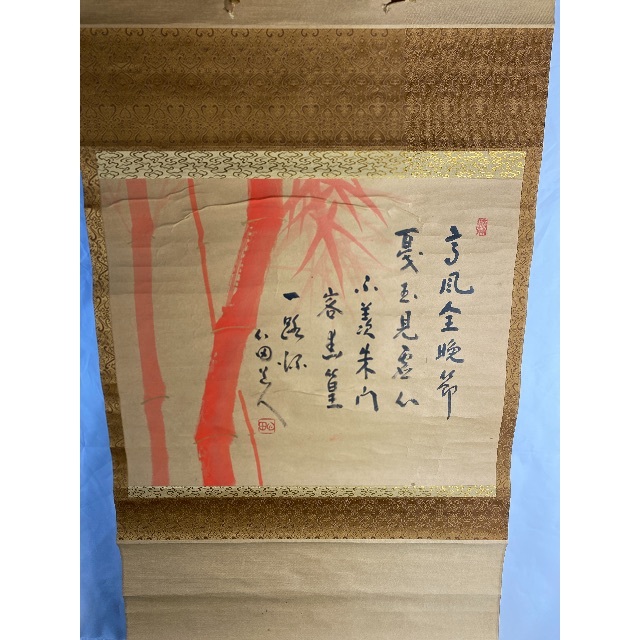 高風全晩節
戛玉見虚心
不羨朱門
客青篁
一路深